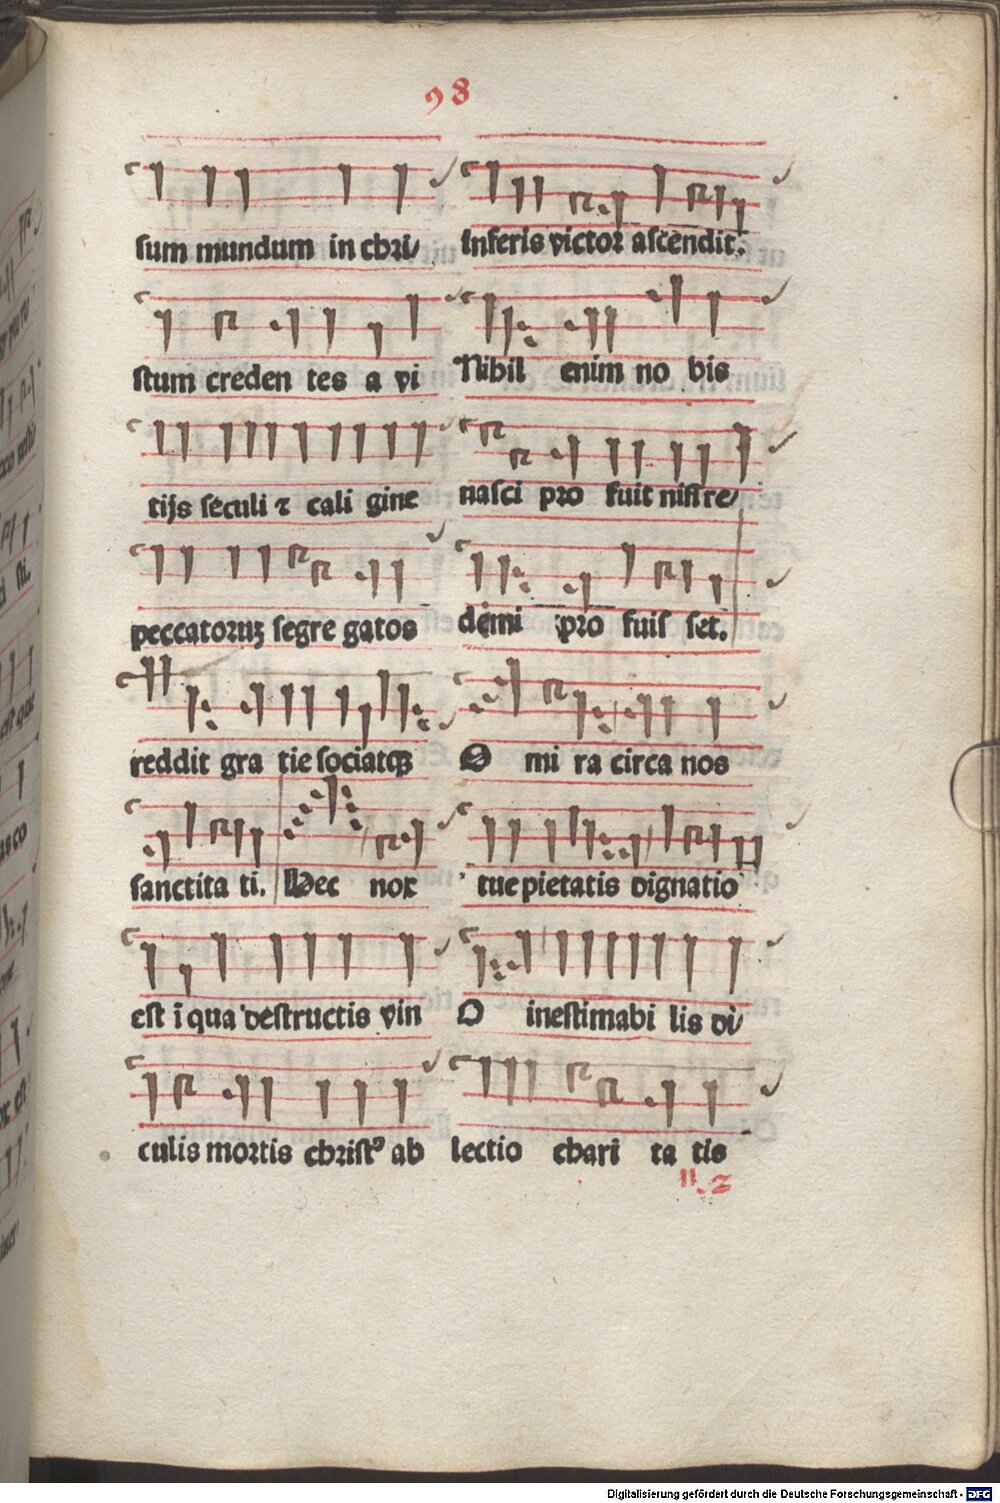 98
sum mundum in chri/
stum creden tes a vi
tijs seculi ⁊ cali gine
peccatoruꝫ segre gatos
reddit gra tie sociatqꝫ
sanctita ti. Hec nox
est ī qua destructis vin
culis mortis christꝰ ab
inferis victor ascendit.
Nihil enim no bis
nasci pro fuit nisi re/
dimi pro fuis set.
O mi ra circa nos
tue pietatis dignatio
O inestimabi lis di/
lectio chari ta tis
Digitalisierung gefördert durch die Deutsche Forschungsgemeinschaft - DFG